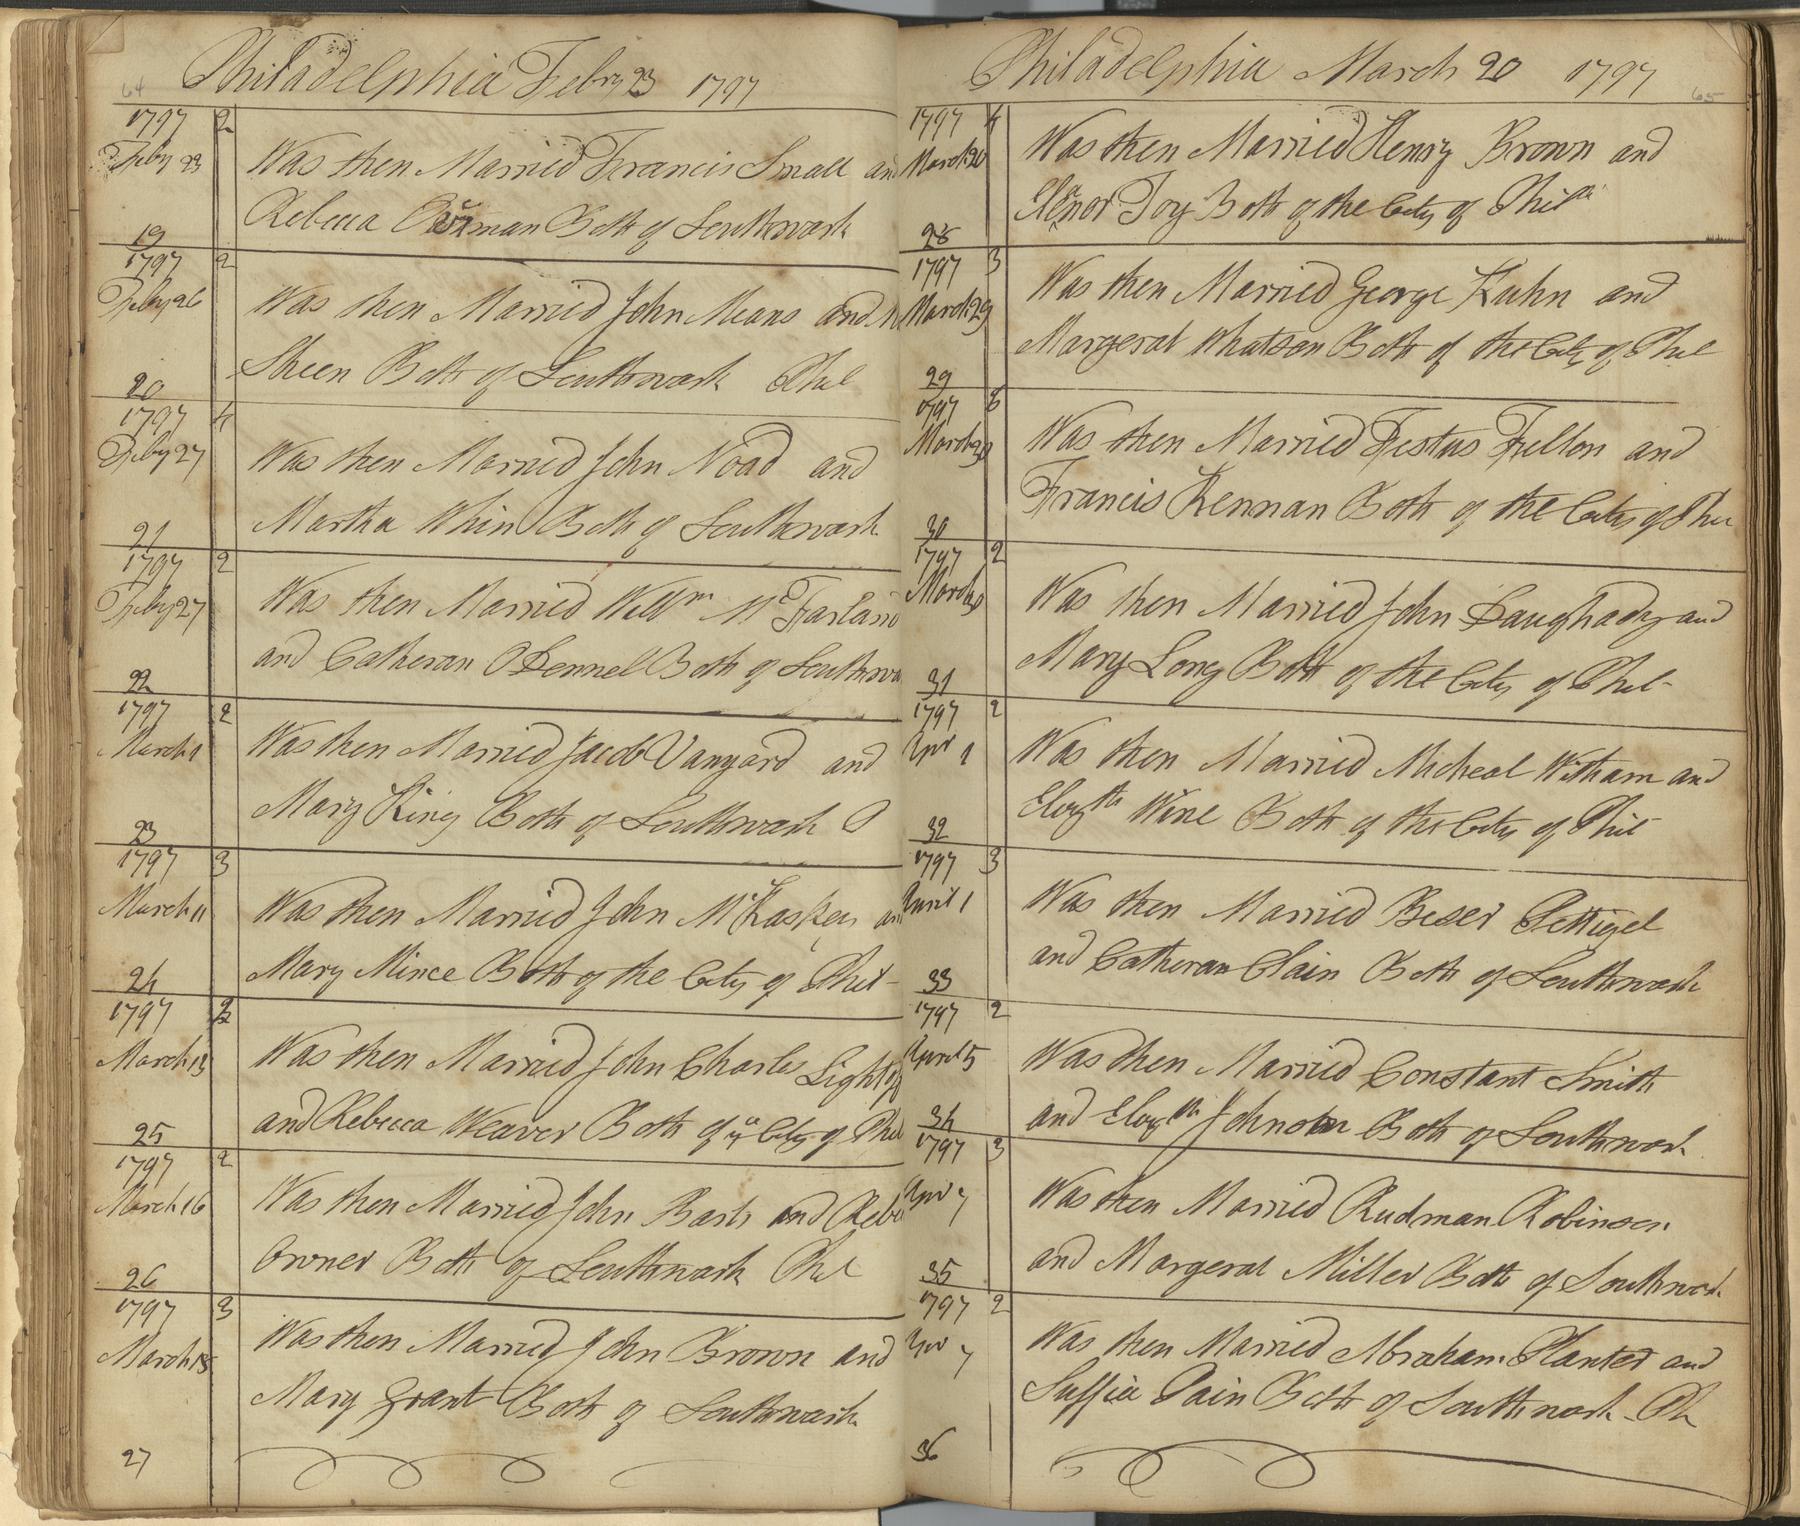 64
Philadelphia Febry 23 1797
1797 2
Feby 23
Was then Married Francis Small and
Rebecca Both of Southwark
19
1797 2
Feby 26
Was then Married John Means and
Sheen Both of Southwark Phil
20
1797 4
Feby 27
Was then Married John Noad and
Martha Whin Both of Southwark
21
1797 2
Feby 27
Was then Married Willm Mc Farland
and Catheran O Dennel Both of Southwa
22
1797 2
March 1
Was then Married Jacob Vanyard and
Mary King Both of Southwark P
23
1797 3
March 11
Was then Married John Mc Kaskey an
Mary Mince Both of the City of Phil-
24
1797
March 13
Was then Married John Charles
and Rebecca Weaver Both of ye City of Phil
25
1797 2
March 16
Was then Married John Barts and Rebe
Owner Both of Southwark Phil
26
1797 3
March 18
Was then Married John Brown and
Mary Grant Both of Southwark
27
Philadelphia March 20 1797
65
1797 4
March 20
Was then Married Henry Brown and
Elenor Toy Both of the City of Phila
28
1797 3
March 29
Was then Married George Kuhn and
Margerat Whatson Both of the City of Phil
29
1797 6
March 30
Was then Married Festus Felton and
Francis Kennan Both of the City of Phil
30
1797 2
March
Was then Married John Daughady and
Mary Long Both of the City of Phil-
31
1797 2
Apr 1
Was then Married Micheal Witham and
Elizth Wine Both of the City of Phil
32
1797 3
April 1
Was then Married Beser
and Catheran Clain Both of Southwark
33
1797 2
April 5
Was then Married Constant Smith
and Elizth Johnston Both of Southwark
34
1797 3
Apr 7
Was then Married Rudman Robinson
and Margerat Miller Both of Southwark
35
1797 2
Apr 7
Was then Married Abraham Planter and
Suffia Pain Both of Southwark - Ph
36